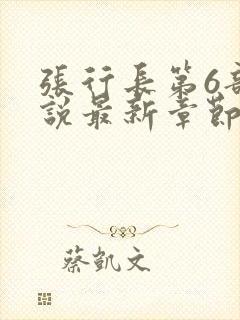 張行長第6部
說最新章節
蔡凱文